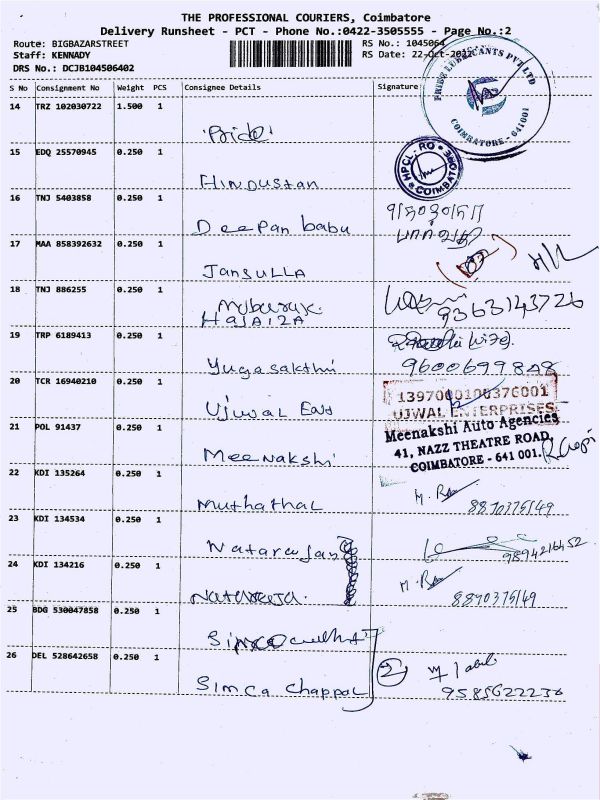 THE PROFESSIONAL COURIERS, Coimbatore
Delivery Runsheet - PCT - Phone No.:0422-3505555 - Page No.:2
Route: BIGBAZARSTREET
RS No.: 1045064
Staff: KENNADY
RS Date: 22-Oct-20
DRS No.: DCJB104506402
S No Consignment No Weight PCS Consignee Details Signature
PRIDE LUBRICANTS PVT LTD
COIMBATORE - 641001
14 TRZ 102030722 1.500 1
Pride
15 EDQ 25570945 0.250 1
HPCL-RO
COIMBATORE
Hindustan
16 TNJ 5403858 0.250 1
Deepan babu
17 MAA 858392632 0.250 1
Jansulla
18 TNJ 886255 0.250 1
Mubaruk
9363143726
19 TRP 6189413 0.250 1
Yugasakthi
9600699848
20 TCR 16940210 0.250 1
Ujwal Ent
1397000100376001
UJWAL ENTERPRISES
21 POL 91437 0.250 1
Meenakshi
Meenakshi Auto Agencies
41, NAZZ THEATRE ROAD,
COIMBATORE - 641 001.
22 KDI 135264 0.250 1
Muthathal
8870375149
23 KDI 134534 0.250 1
Natarajan
9894216452
24 KDI 134216 0.250 1
Nataraja
8870375149
25 BDG 530047858 0.250 1
Simco
26 DEL 528642658 0.250 1
Simca Chappal
2
9585622236